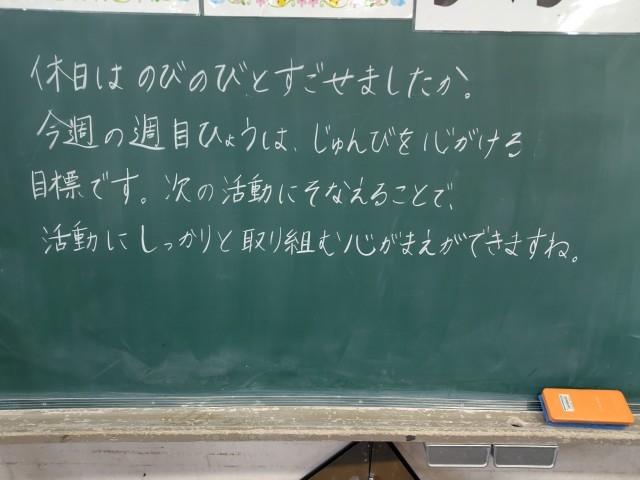 休日は のびのびとすごせましたか。
今週の週目ひょうは、じゅんびを心がける
目標です。次の活動にそなえることで、
活動にしっかりと取り組む心がまえができますね。